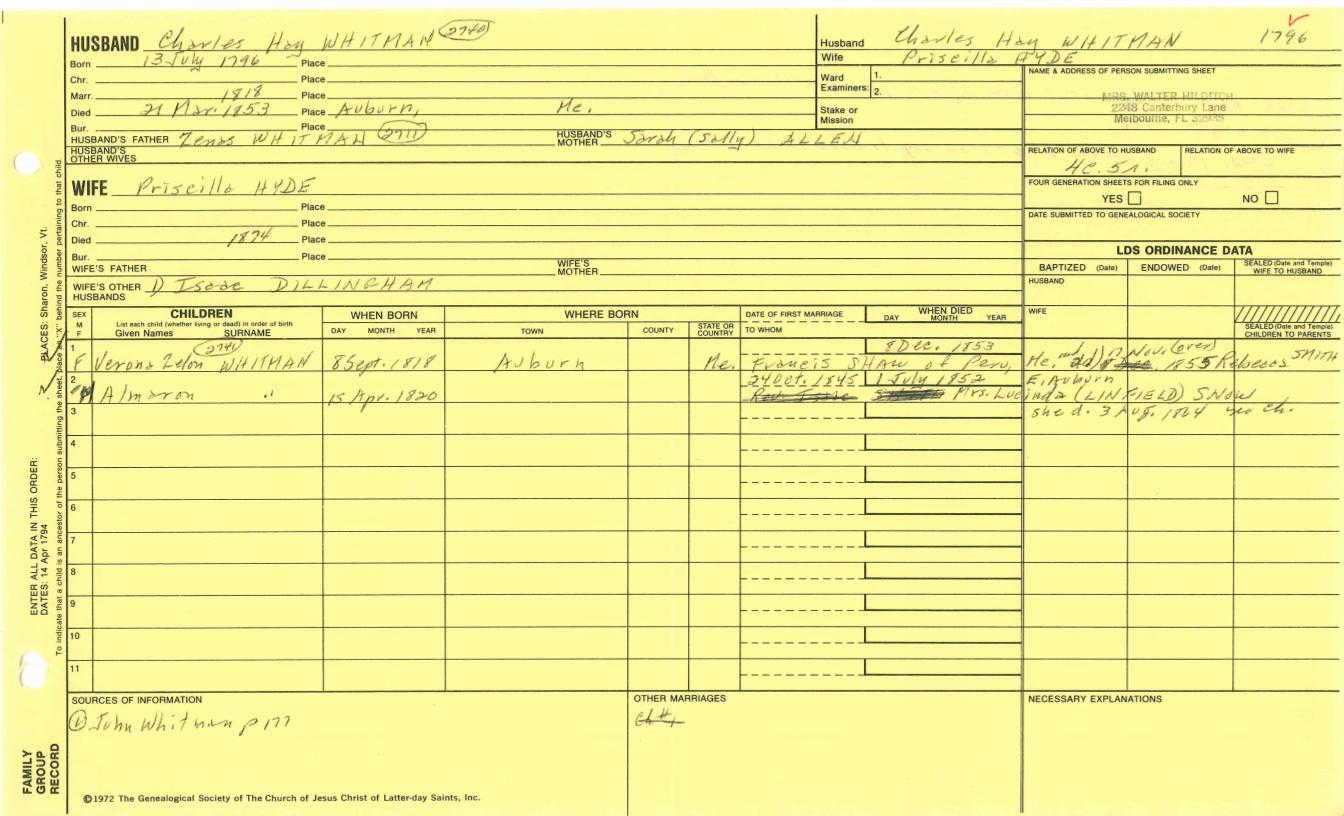 HUSBAND Charles Hay WHITMAN 2740
Born 13 July 1796 Place
Chr. Place
Marr. 1818 Place
Died 21 Mar. 1853 Place Auburn, Me.
Bur. Place
HUSBAND'S FATHER Zenas WHITMAN 2711 HUSBAND'S MOTHER Sarah (Sally) ALLEN
HUSBAND'S OTHER WIVES
WIFE Priscilla HYDE
Born Place
Chr. Place
Died 1874 Place
Bur. Place
WIFE'S FATHER WIFE'S MOTHER
WIFE'S OTHER HUSBANDS 1) Isaac DILLINGHAM
Husband Charles Hay WHITMAN 1796
Wife Priscilla HYDE
Ward Examiners: 1.
2.
Stake or Mission
NAME & ADDRESS OF PERSON SUBMITTING SHEET
MRS. WALTER HILDITCH
2248 Canterbury Lane
Melbourne, FL 32935
RELATION OF ABOVE TO HUSBAND RELATION OF ABOVE TO WIFE
4C. 5r.
FOUR GENERATION SHEETS FOR FILING ONLY
YES NO
DATE SUBMITTED TO GENEALOGICAL SOCIETY
LDS ORDINANCE DATA
BAPTIZED (Date) ENDOWED (Date) SEALED (Date and Temple) WIFE TO HUSBAND
HUSBAND
WIFE
SEALED (Date and Temple) CHILDREN TO PARENTS
SEX M F
CHILDREN
List each child (whether living or dead) in order of birth
Given Names SURNAME
WHEN BORN
DAY MONTH YEAR
WHERE BORN
TOWN COUNTY STATE OR COUNTRY
DATE OF FIRST MARRIAGE
TO WHOM
WHEN DIED
DAY MONTH YEAR
2741
8 Dec. 1853
1 F Verona Zelon WHITMAN 8 Sept. 1818 Auburn Me. Francis SHAW of Peru, Me. Nov. (over) 1855 Rebecca SMITH
24 Oct. 1845 1 July 1852 E. Auburn
2 M Almaron " 15 Apr. 1820 Mrs. Lucinda (LINFIELD) SNOW
she d. 3 Aug. 1864 no ch.
3
4
5
6
7
8
9
10
11
SOURCES OF INFORMATION
① John Whitman p 177
OTHER MARRIAGES
Ch #1
NECESSARY EXPLANATIONS
©1972 The Genealogical Society of The Church of Jesus Christ of Latter-day Saints, Inc.
FAMILY GROUP RECORD
ENTER ALL DATA IN THIS ORDER:
DATES: 14 Apr 1794
PLACES: Sharon, Windsor, Vt.
To indicate that a child is an ancestor of the person submitting the sheet, place an "X" behind the number pertaining to that child.